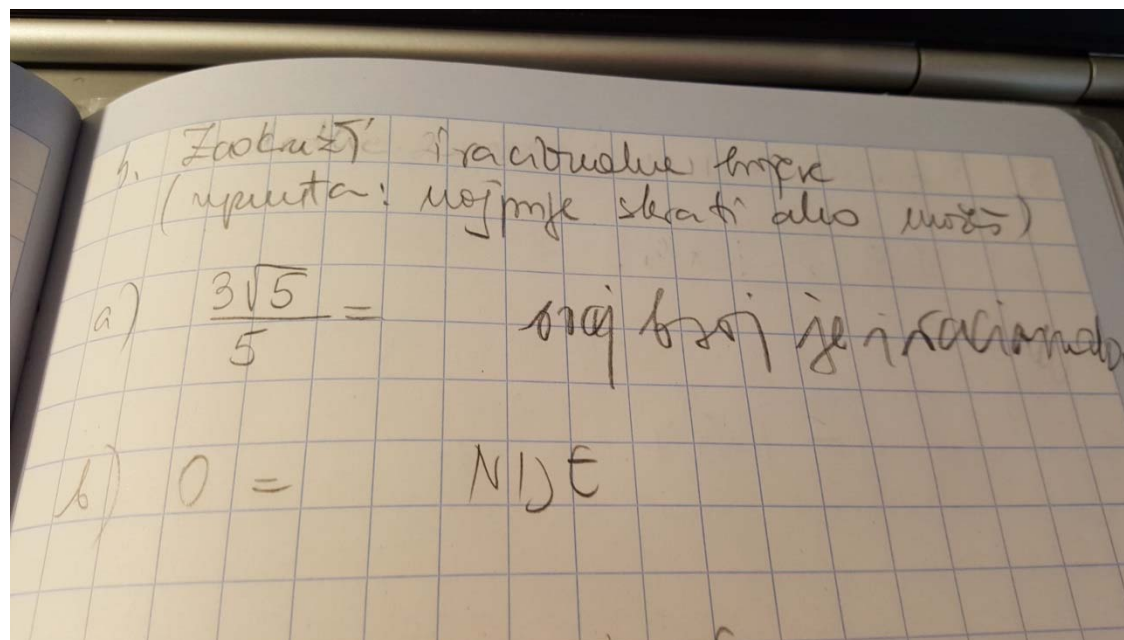 Zaokruži iracionalne brojeve
(uputa: najprije skrati ako možeš)
a) 3√5/5 = ovaj broj je iracionalan
b) 0 = NIJE